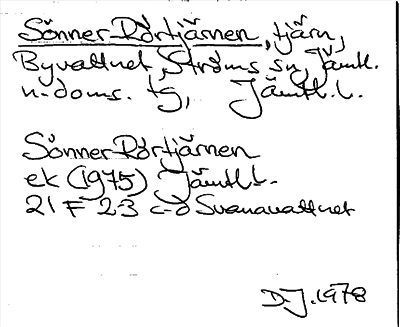 Sönner-Rörtjärnen, tjärn,
Byvattnet, Ströms sn, Jämtl.
n. doms. tg, Jämtl. l.
Sönner-Rörtjärnen
ek (1975) Jämtl l.
21 F 2-3 c-d Svanavattnet
D.J. 1978